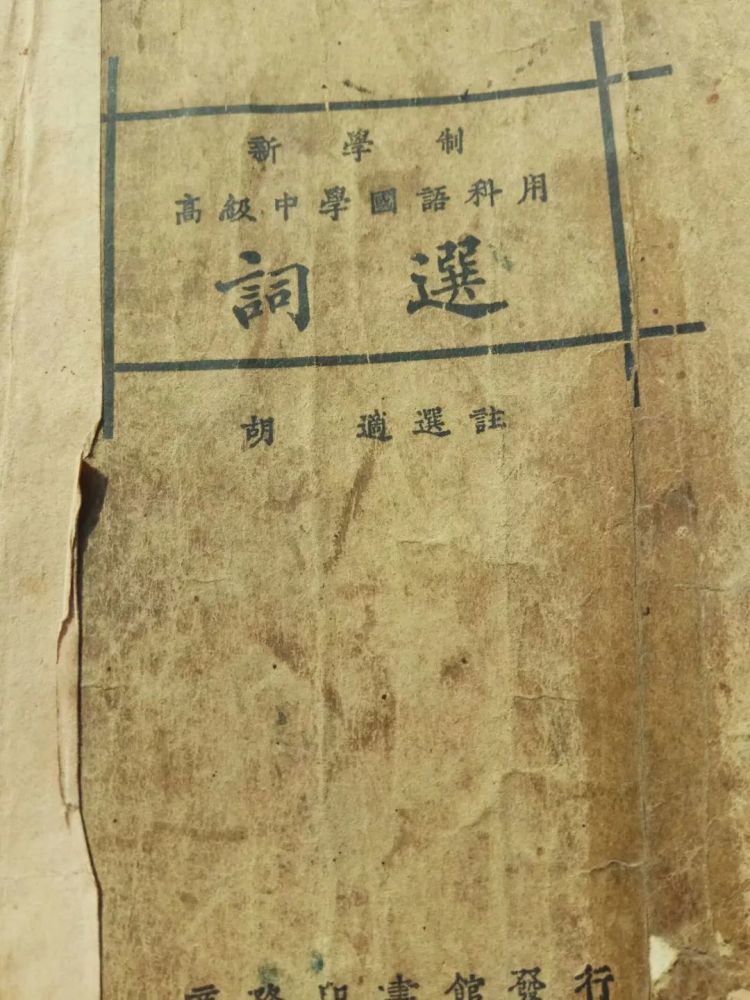 新學制
高級中學國語科用
詞選
胡適選註
商務印書館發行